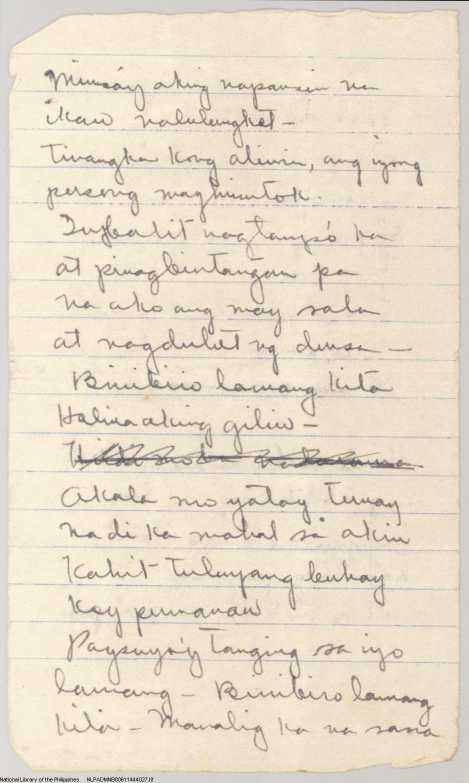 Minsa'y aking napansin na
ikaw nalulungkot -
Tinangka kong aliwin, ang iyong
pusong maghimutok.
Tugbakit nagtampo ka
at pinagbintangan pa
na ako ang may sala
at nagdulot ng dusa -
Binibiro lamang kita
Halina aking giliw -
Akala mo yata'y tunay
na di ka mahal sa akin
Kahit tuluyang buhay
Koy pumanaw
Pagsuyo'y tanging sa iyo
lamang - Binibiro lamang
kita - Manalig ka na sana
National Library of the Philippines NLPADMNB00611444027.tif